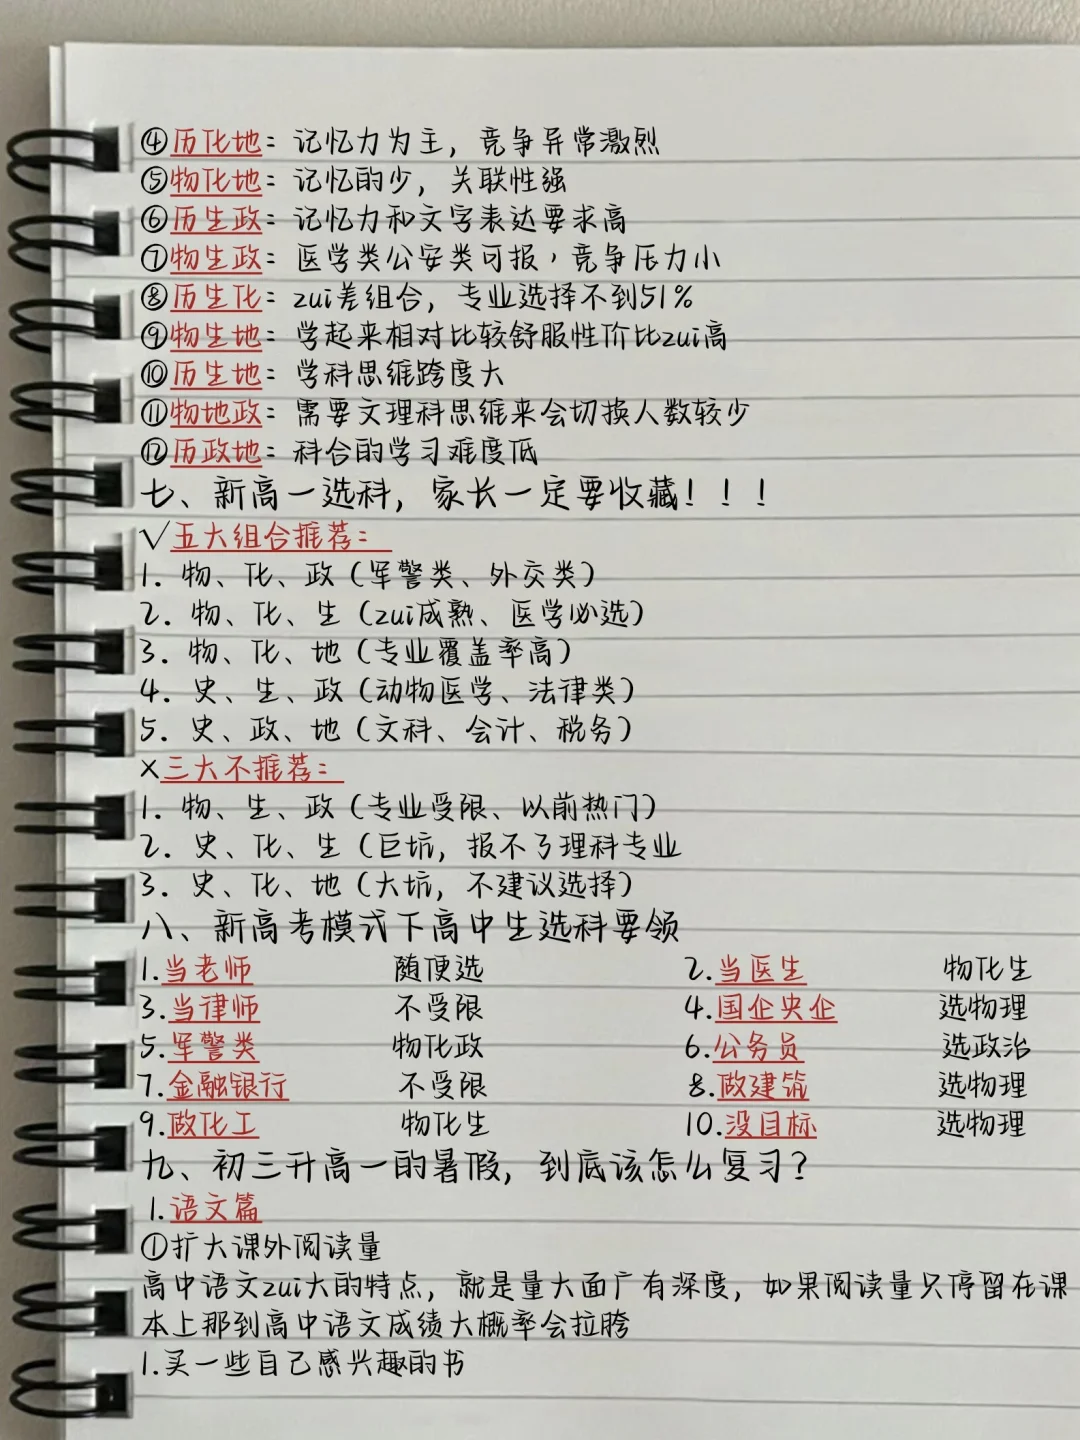 ④历化地：记忆力为主，竞争异常激烈
⑤物化地：记忆的少，关联性强
⑥历生政：记忆力和文字表达要求高
⑦物生政：医学类公安类可报，竞争压力小
⑧历生化：zui差组合，专业选择不到51%
⑨物生地：学起来相对比较舒服性价比zui高
⑩历生地：学科思维跨度大
⑪物地政：需要文理科思维来会切换人数较少
⑫历政地：科合的学习难度低
七、新高一选科，家长一定要收藏！！！
√五大组合推荐：
1. 物、化、政（军警类、外交类）
2. 物、化、生（zui成熟、医学必选）
3. 物、化、地（专业覆盖率高）
4. 史、生、政（动物医学、法律类）
5. 史、政、地（文科、会计、税务）
×三大不推荐：
1. 物、生、政（专业受限、以前热门）
2. 史、化、生（巨坑，报不了理科专业
3. 史、化、地（大坑，不建议选择）
八、新高考模式下高中生选科要领
1.当老师 随便选 2.当医生 物化生
3.当律师 不受限 4.国企央企 选物理
5.军警类 物化政 6.公务员 选政治
7.金融银行 不受限 8.做建筑 选物理
9.做化工 物化生 10.没目标 选物理
九、初三升高一的暑假，到底该怎么复习？
1.语文篇
①扩大课外阅读量
高中语文zui大的特点，就是量大面广有深度，如果阅读量只停留在课
本上那到高中语文成绩大概率会拉胯
1.买一些自己感兴趣的书